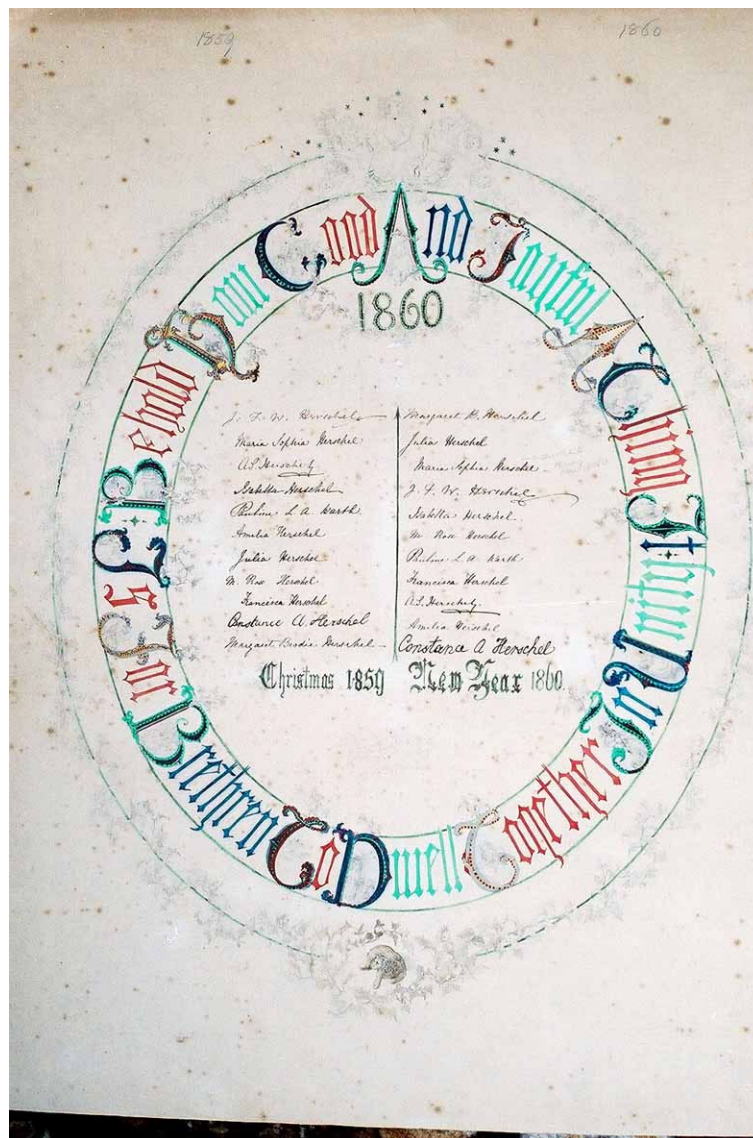 1859
1860
Behold How Good And Joyful A Thing It Is For Brethren To Dwell Together In Unity
1860
J. F. W. Herschel
Maria Sophia Herschel
A.S. Herschel
Isabella Herschel
Pauline L A Warth
Amelia Herschel
Julia Herschel
M. Rose Herschel
Francisca Herschel
Constance A. Herschel
Margaret Brodie Herschel
Margaret B. Herschel
Julia Herschel
Maria Sophia Herschel
J. F. W. Herschel
Isabella Herschel
M Rose Herschel
Pauline L A Warth
Francisca Herschel
A.S. Herschel
Amelia Herschel
Constance A Herschel
Christmas 1859
New Year 1860.